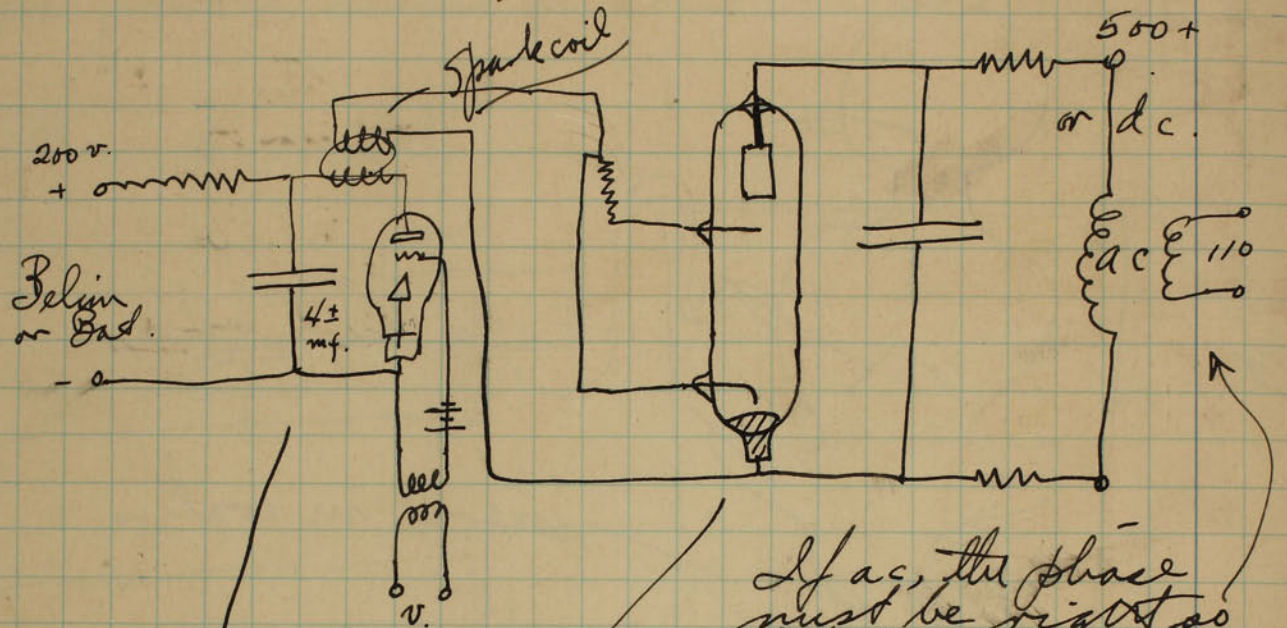 Spark coil
500+
or dc.
200 v.
+
ac
110
or Bat.
4±
mf.
-
v.
If ac, the phase
must be right so